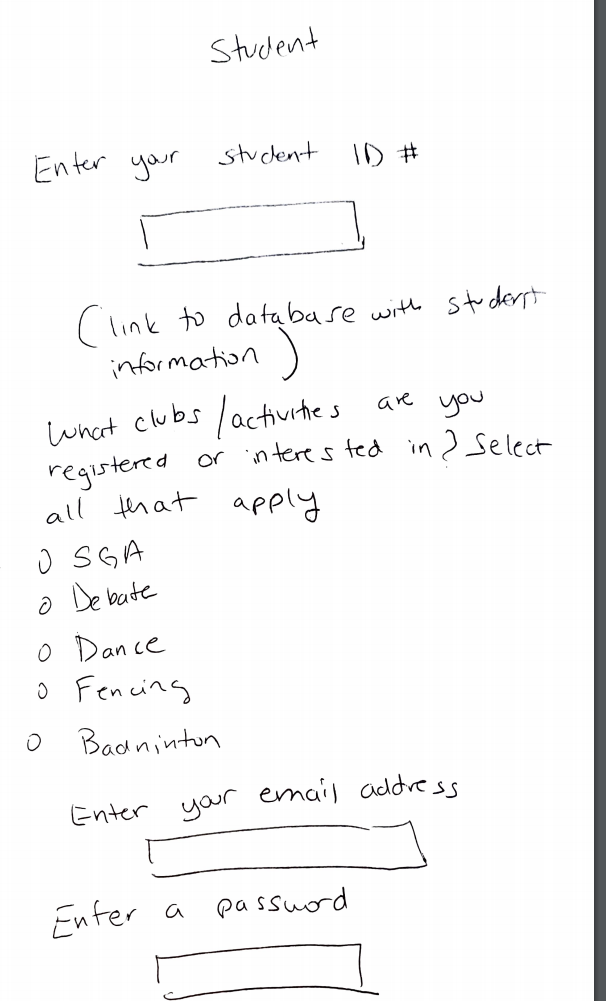 Student
Enter your student ID #
(link to database with student
information)
What clubs/activities are you
registered or interested in? Select
all that apply
O SGA
O Debate
O Dance
O Fencing
O Badninton
Enter your email address
Enter a password